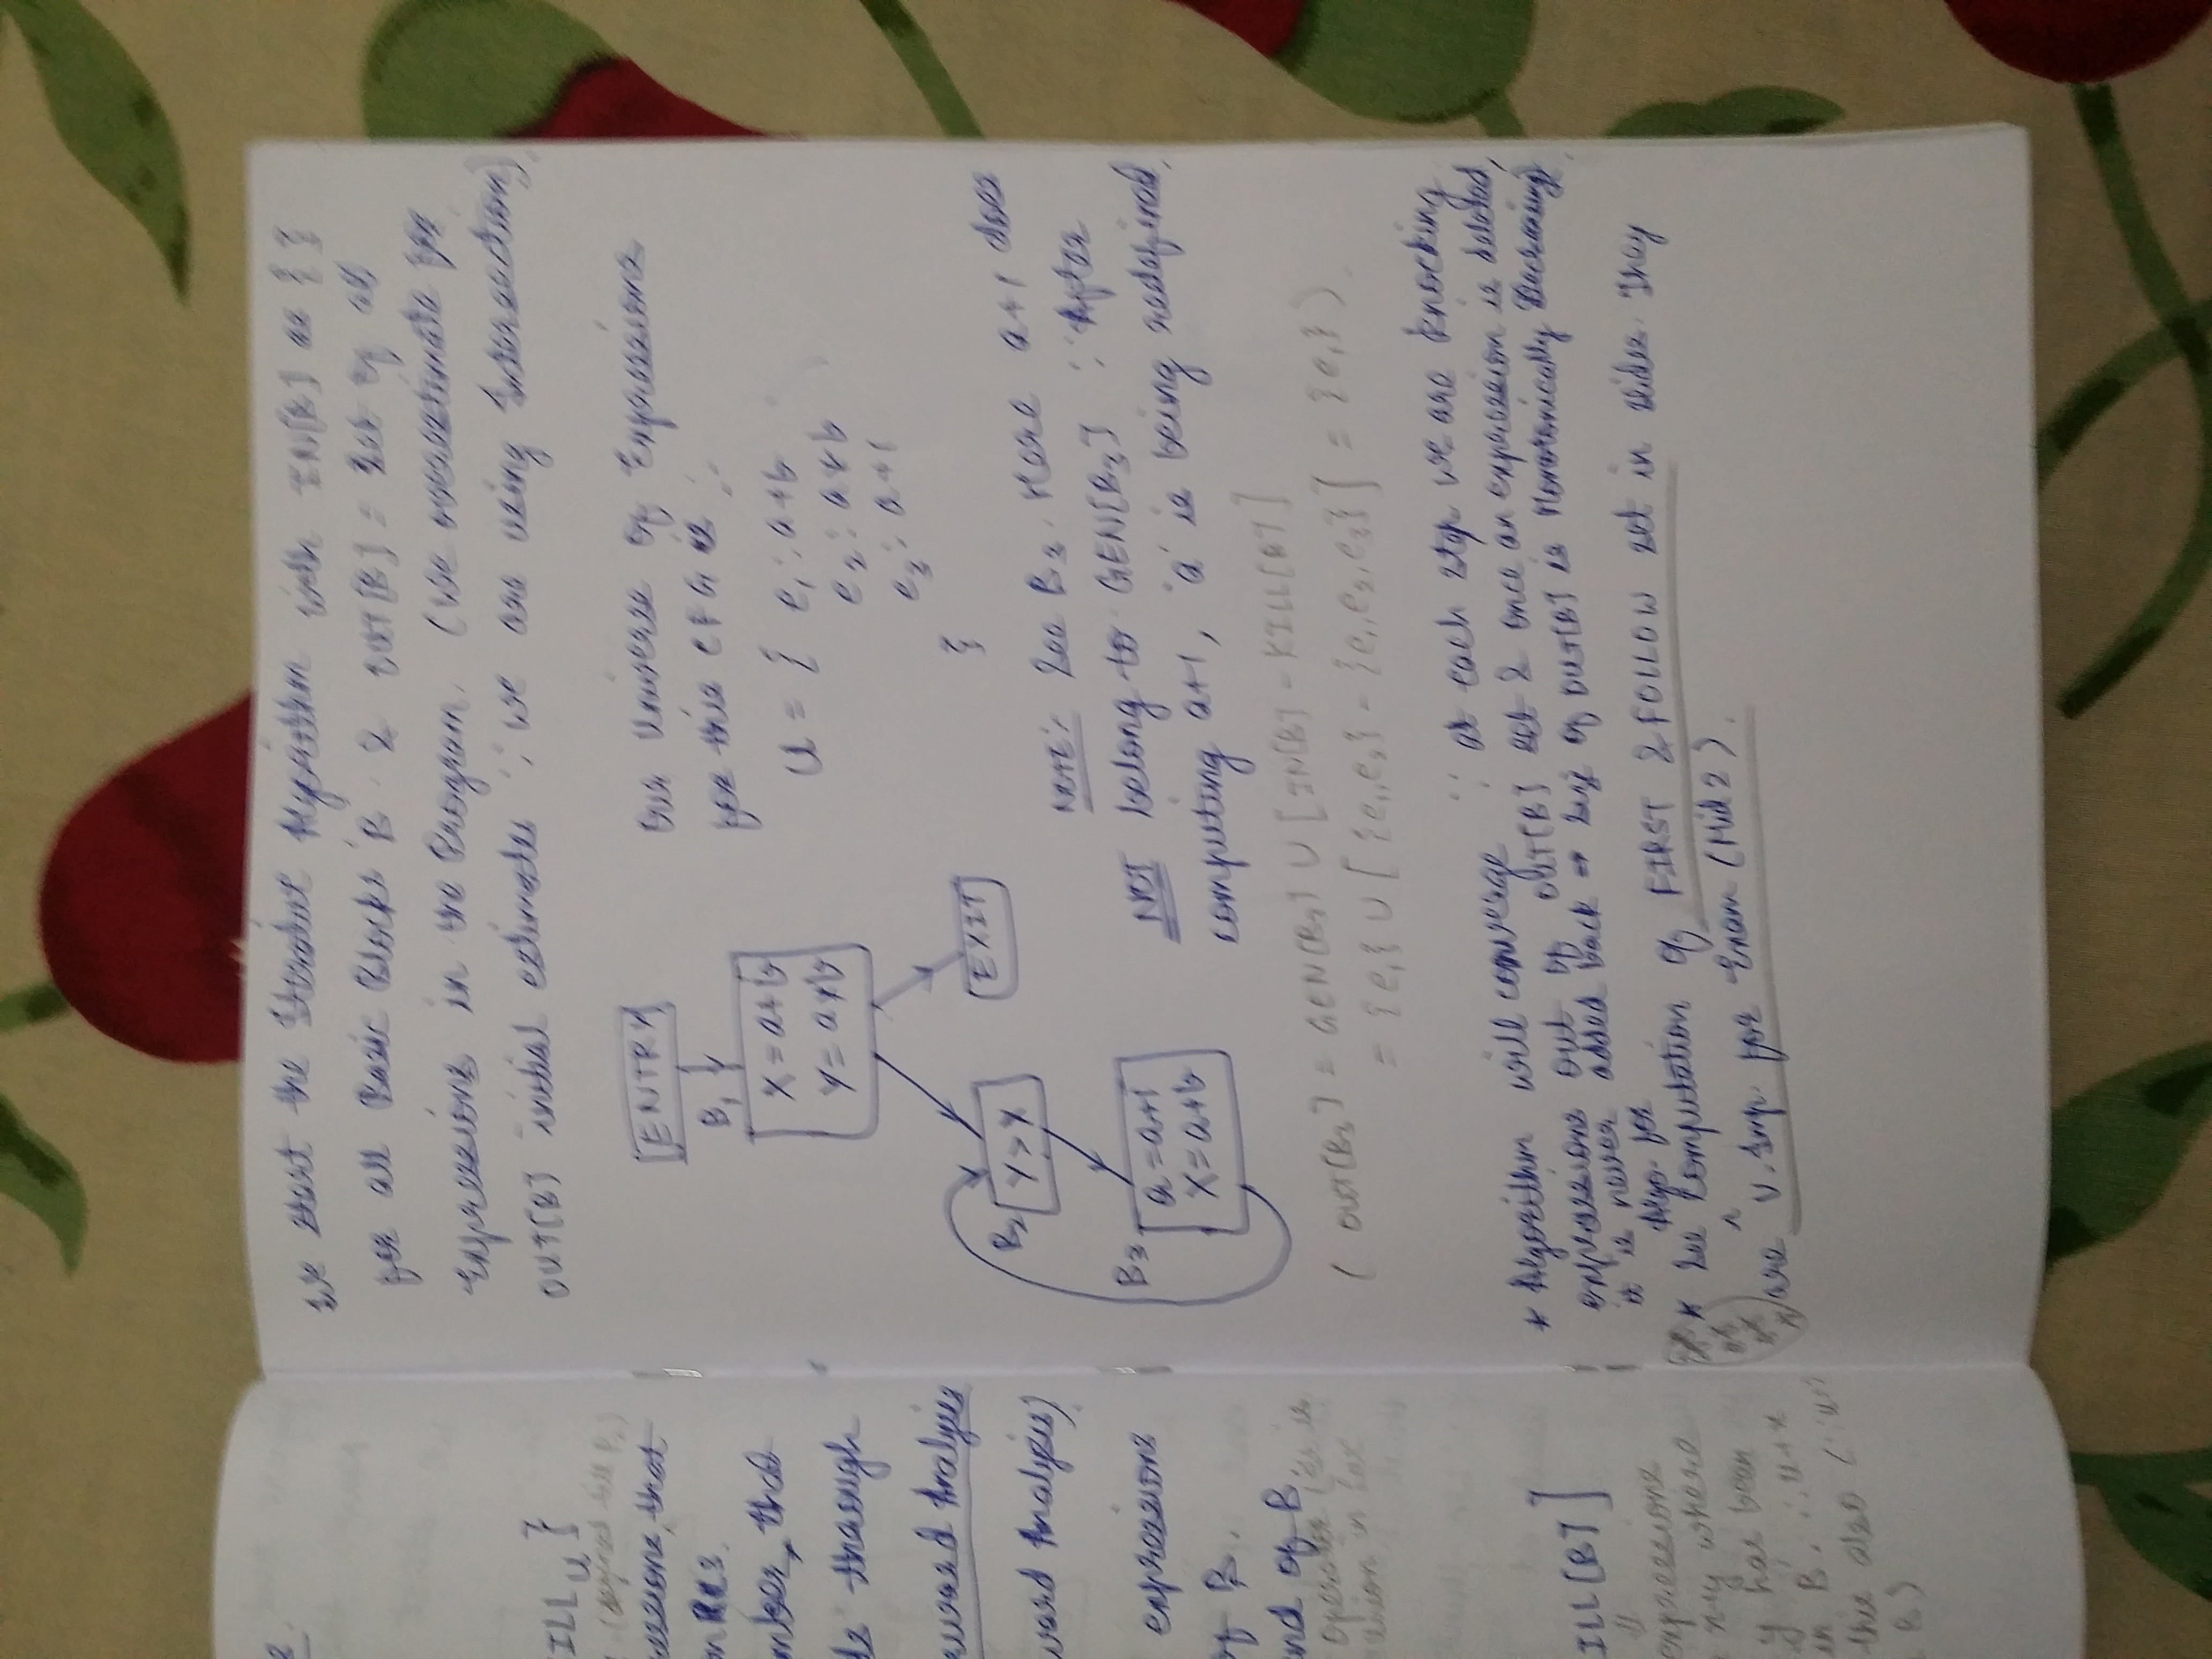 2.
ILL_U }
(defined till P.)
essions, that
on
mber, that
ds through
ward Analysis
ward Analysis)
expressions
of B.
end of B
Operator (is
union in
ILL[B]]
"
expressions
x+y where
y has been
in B. ∴ u+x
this also (∵
B)
We start the Iterative Algorithm with IN[B] as { }
for all Basic Blocks 'B' & OUT[B] = Set of all
Expressions in the Program. (We overestimate for
OUT[B] initial estimates ∵ we are using Intersection)
ENTRY
B₁
X = a+b
Y = a*b
EXIT
B₂
Y > X
B₃
a = a+1
X = a+b
Our Universe of Expressions
for this CFG is :-
U = { e₁: a+b
e₂: a*b
e₃: a+1
}
NOTE:- See B₃. Here a+1 does
NOT belong to GEN[B₃] ∵ After
computing a+1, 'a' is being redefined.
( OUT[B₃] = GEN[B₃] U [IN[B] - KILL[B]]
= {e₁} U [{e₁,e₂} - {e₁,e₂,e₃}] = {e₁} ).
* Algorithm will converge ∵ at each step we are knocking
expressions out of OUT[B] set & once an expression is deleted,
it is never added back ⇒ Size of OUT[B] is Monotonically Decreasing)
Algo. for
* See ^ Computation of FIRST & FOLLOW set in slides. They
are V. Imp. for Exam (Mid 2).